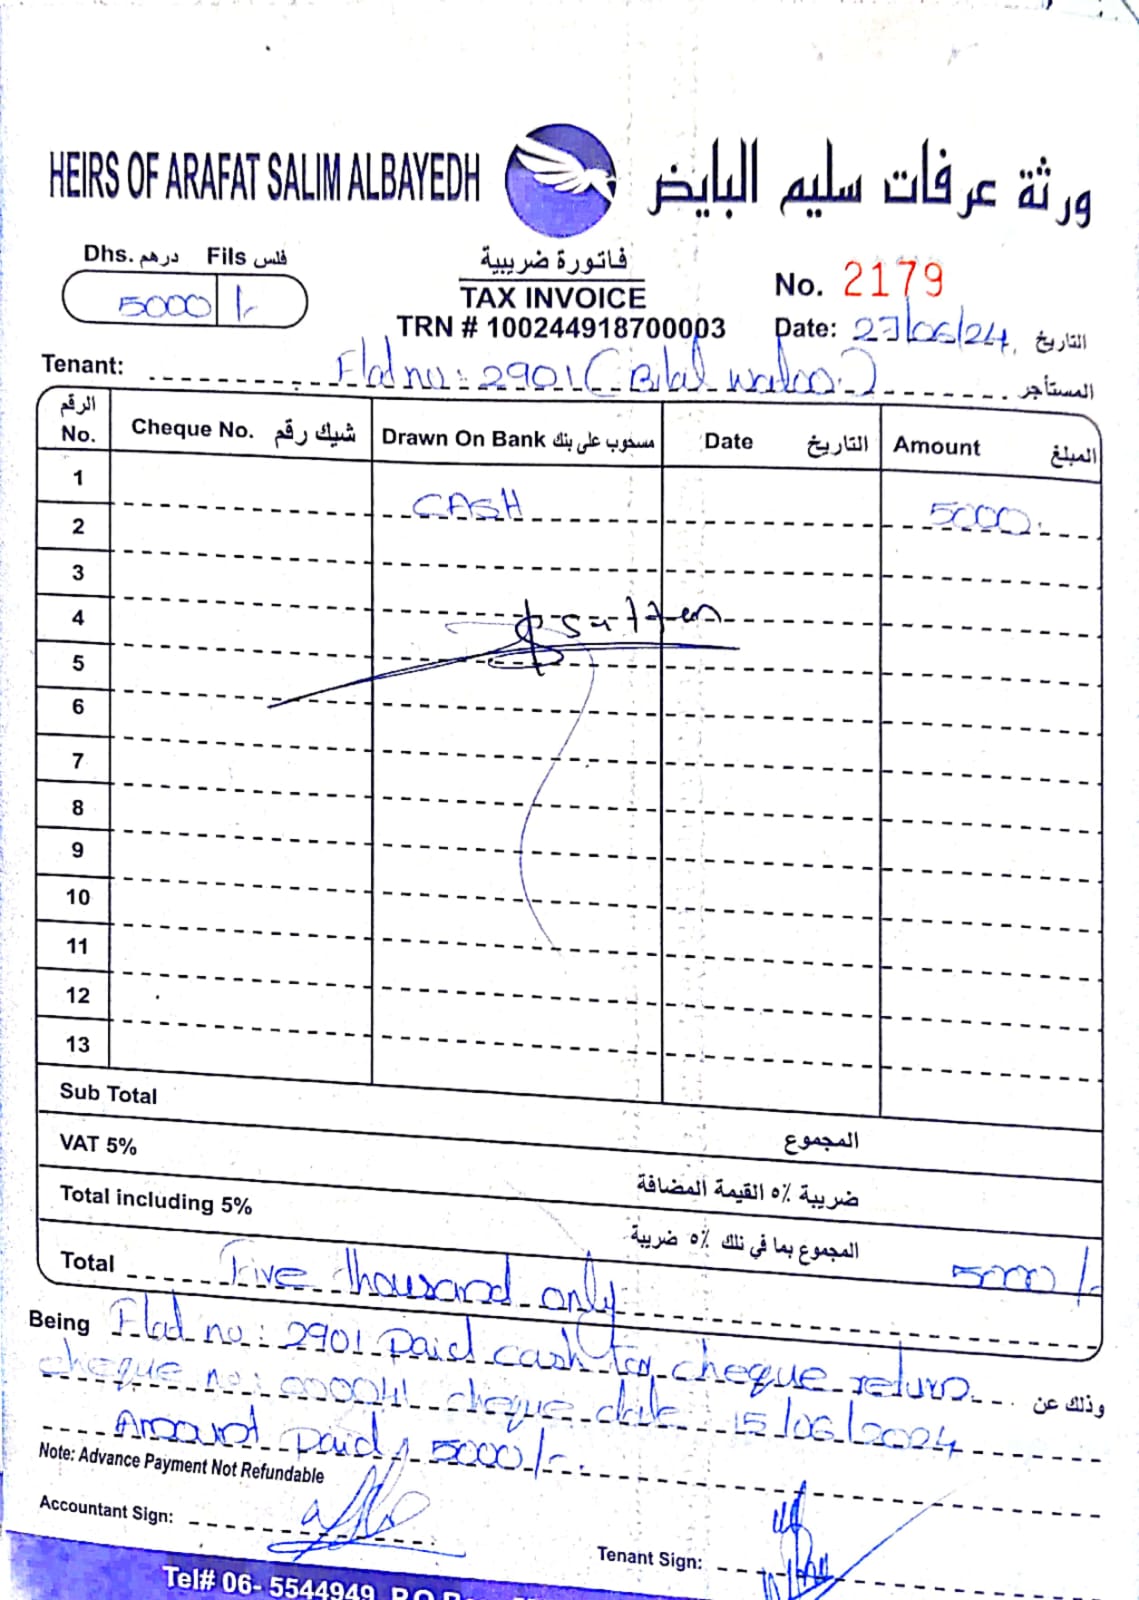 HEIRS OF ARAFAT SALIM ALBAYEDH
ورثة عرفات سليم البايض
Dhs. درهم Fils فلس
5000 /-
فاتورة ضريبية
TAX INVOICE
TRN # 100244918700003
No. 2179
Date: 27/06/24. التاريخ
Tenant: Flad no: 2901 ( Bilal المستأجر
الرقم No. Cheque No. شيك رقم Drawn On Bank مسحوب على بنك Date التاريخ Amount المبلغ
1
CASH 5000.
2
3
4
5
6
7
8
9
10
11
12
13
Sub Total المجموع
VAT 5% ضريبة ٥٪ القيمة المضافة
Total including 5% المجموع بما في ذلك ٥٪ ضريبة
5000 /-
Total Five thousand only
Being Flad no: 2901 Paid cash for cheque return وذلك عن
cheque no: 000041 cheque date: 15/06/2024
Amount paid 5000/-.
Note: Advance Payment Not Refundable
Accountant Sign:
Tenant Sign:
Tel# 06- 5544949